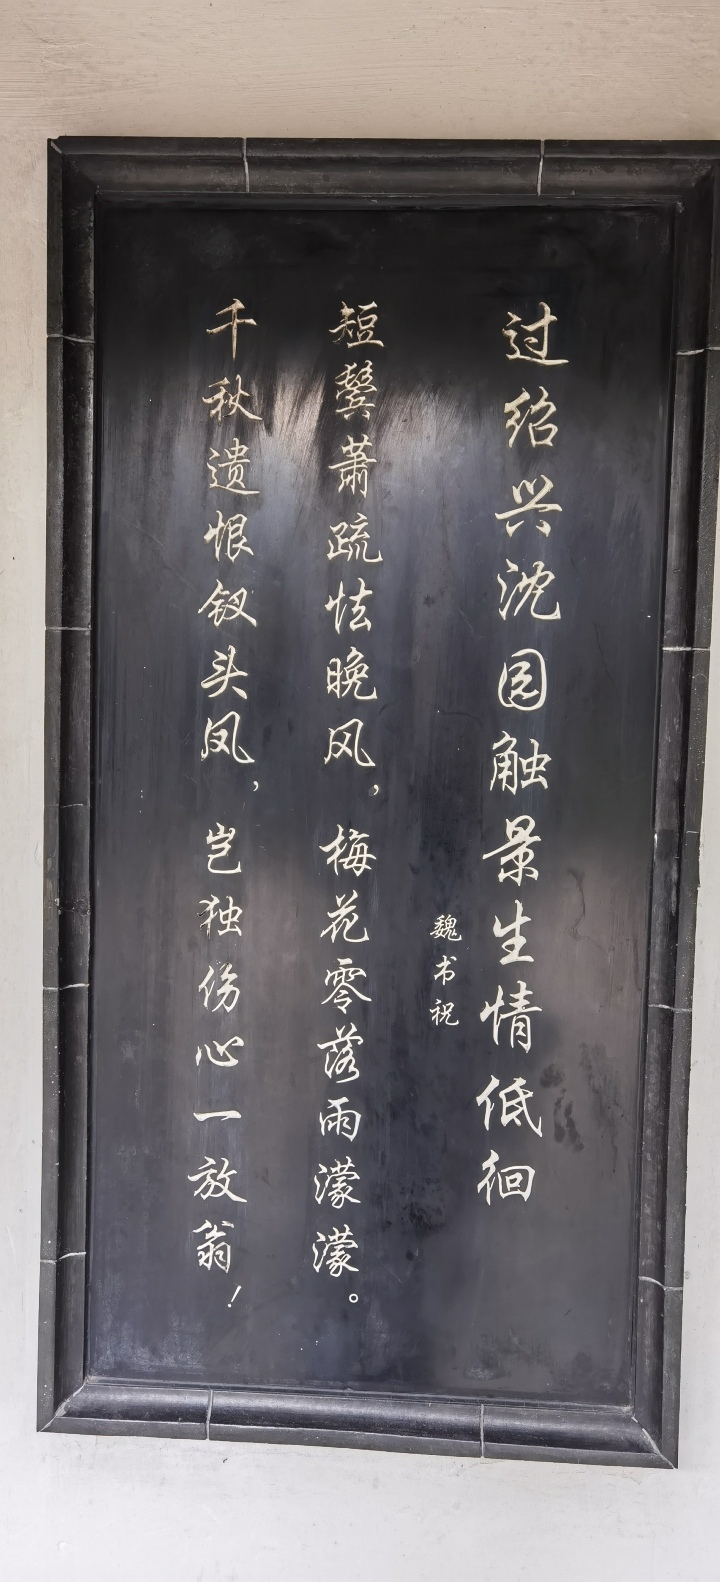 过绍兴沈园触景生情低徊
魏书祝
短鬓萧疏怯晚风，梅花零落雨濛濛。
千秋遗恨钗头凤，岂独伤心一放翁！